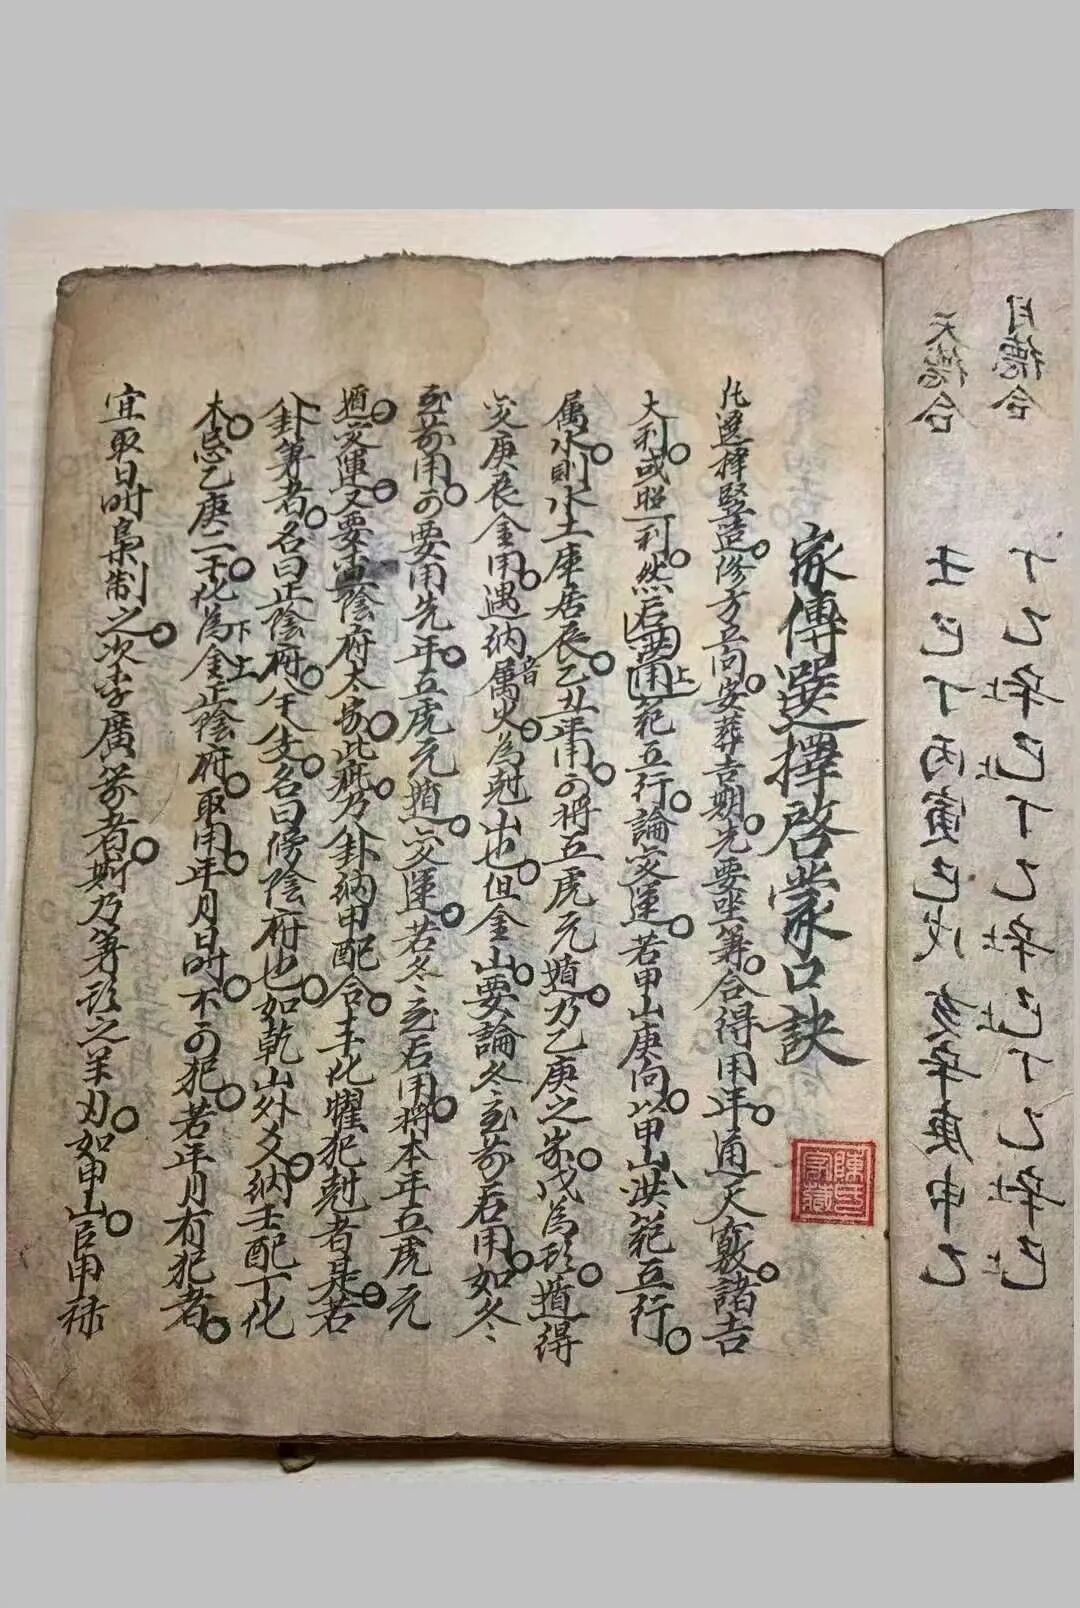 月德合
丁乙辛己丁乙辛己丁乙辛己
天德合
壬己丁丙寅己戊亥辛庚申乙
家傳選擇啓蒙口訣
陳氏家藏
凡選擇竪造。修方立向。安葬吉期。先要坐筭。合得用年。通天竅。諸吉
大利。或照利。然后用洪範五行。論變運。若甲山庚向。以甲山洪範五行。
属水。則水土庫居辰。乙丑年用。可將五虎元遁。乃乙庚之歲。戊為頭。遁得
变庚辰金。用遇納音属火。為尅山也。但金山。要論冬至前后用。如冬
至前用。可要用先年。五虎元遁。变運。若冬至后用。將本年五虎元
遁。变運。又要查陰府太歲。此疵乃卦納甲配合。丰化曜犯尅者是。若
卦筭者。名曰正陰府。名曰傍陰府也。如乾山外爻。納壬配丁化
木。忌乙庚二干。化為金正陰府。取用年月日时。不可犯。若年月有犯者。
宜取日时梟制之。次李廣箭者。則乃筭頭之羊刃。如甲山。官甲祿